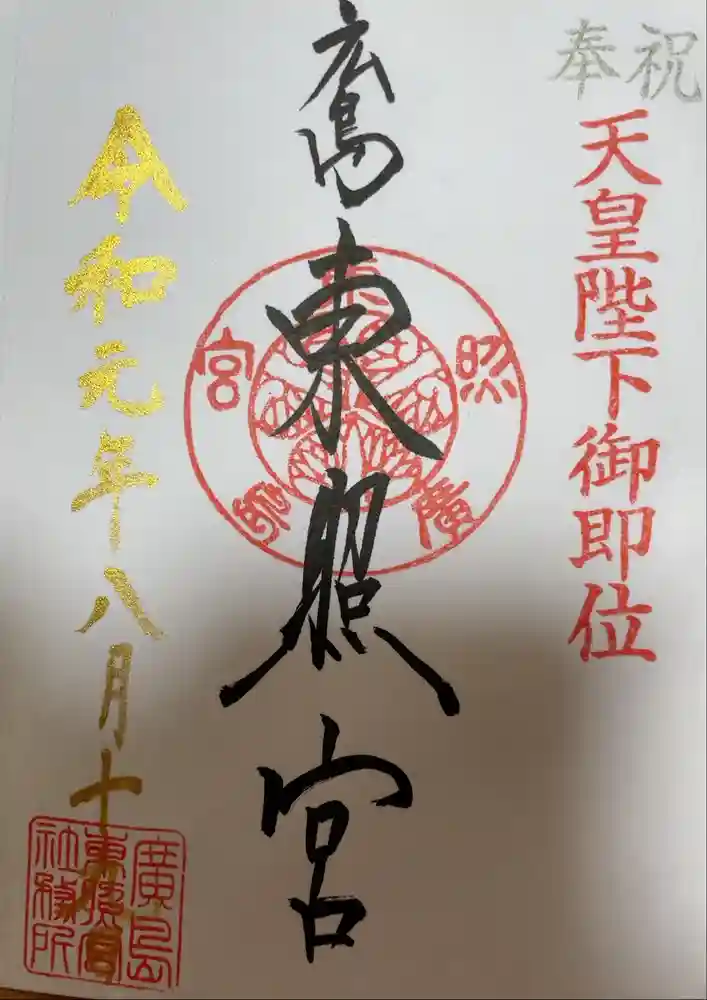 奉祝
天皇陛下御即位
広島
東照宮
東
照
宮
廣
令和元年八月十
廣島
東照宮
社務所